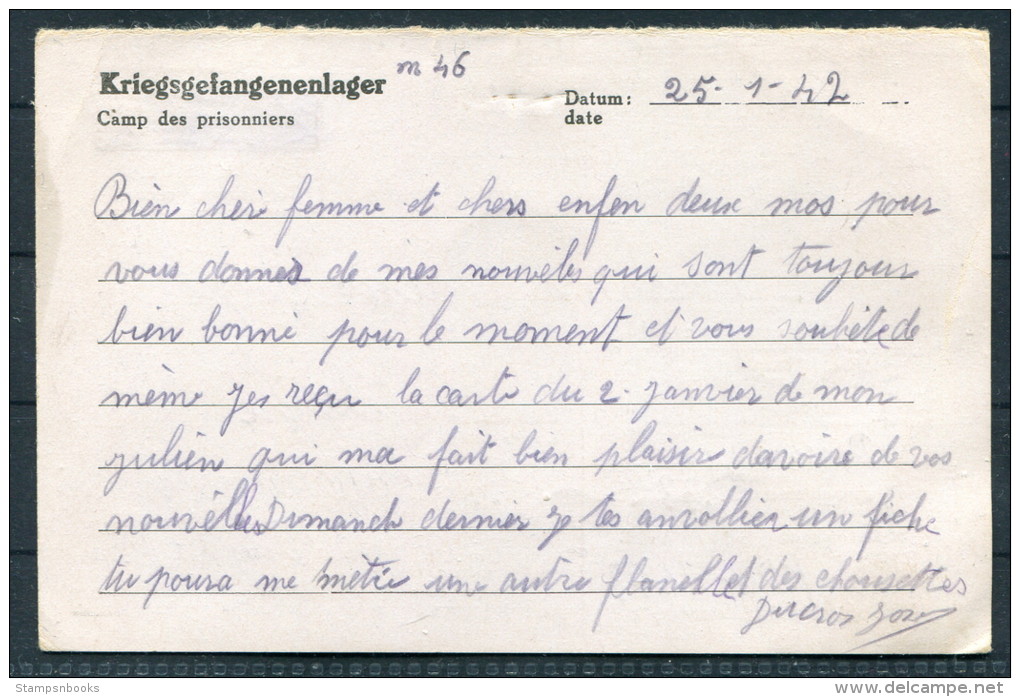 Kriegsgefangenenlager m 46
Camp des prisonniers
Datum: 25-1-42
date
Bien cheri femme et chers enfen deux mos pour
vous donner de mes nouvèles qui sont toujour
bien bonne pour le moment et vous souhète de
mème jes reçu la carte du 2. janvier de mon
julien qui ma fait bien plaisir davoire de vos
nouvélles Dimanch dernier je tes anvollier un fiche
tu poura me mètre une autre flanellet des chousettes
Stampsnbooks
delcampe.net